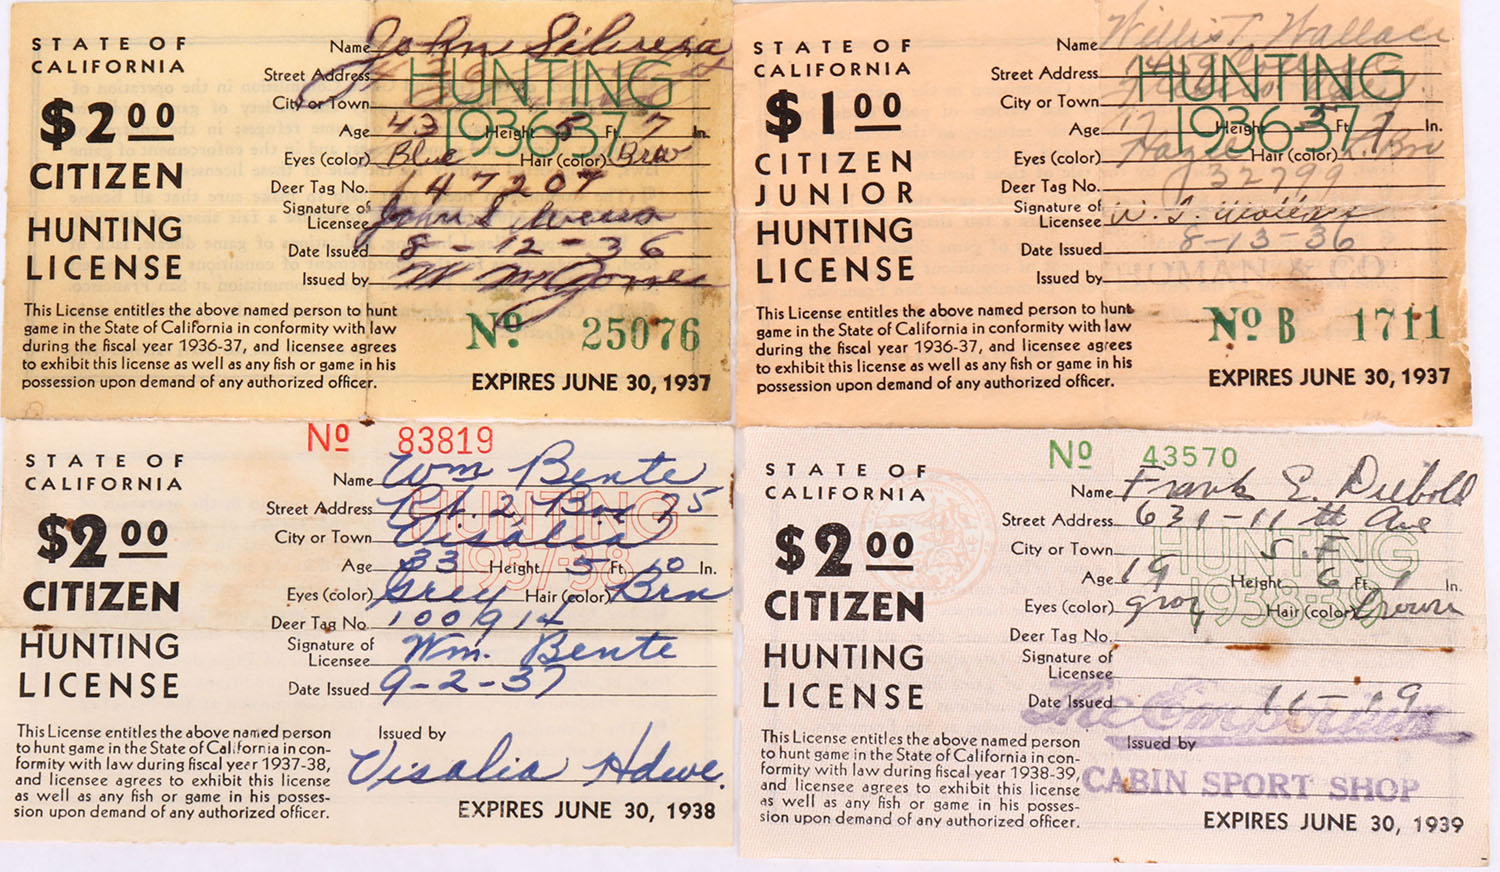 STATE OF
CALIFORNIA
$2.00
CITIZEN
HUNTING
LICENSE
Name John Silveira
Street Address
City or Town
HUNTING
1936-37
Age 43 Height 5 Ft. 7 In.
Eyes (color) Blue Hair (color) Brw
Deer Tag No. 147207
Signature of
Licensee John Silveira
Date Issued 8-12-36
Issued by W McJones
This License entitles the above named person to hunt
game in the State of California in conformity with law
during the fiscal year 1936-37, and licensee agrees
to exhibit this license as well as any fish or game in his
possession upon demand of any authorized officer.
No. 25076
EXPIRES JUNE 30, 1937
STATE OF
CALIFORNIA
$1.00
CITIZEN
JUNIOR
HUNTING
LICENSE
Name Willis T. Wallace
Street Address
City or Town
HUNTING
1936-37
Age 17 Height 5 Ft. 7 In.
Eyes (color) Hazel Hair (color) L. Brn
Deer Tag No. 132799
Signature of
Licensee W. T. Wallace
Date Issued 8-13-36
Issued by
This License entitles the above named person to hunt
game in the State of California in conformity with law
during the fiscal year 1936-37, and licensee agrees
to exhibit this license as well as any fish or game in his
possession upon demand of any authorized officer.
No B 1711
EXPIRES JUNE 30, 1937
No 83819
STATE OF
CALIFORNIA
$2.00
CITIZEN
HUNTING
LICENSE
Name Wm Bente
Street Address Rt. 2, Box 75
City or Town Visalia
HUNTING
1937-38
Age 33 Height 5 Ft. 10 In.
Eyes (color) Grey Hair (color) Brn
Deer Tag No. 100914
Signature of
Licensee Wm. Bente
Date Issued 9-2-37
This License entitles the above named person
to hunt game in the State of California in con-
formity with law during fiscal year 1937-38,
and licensee agrees to exhibit this license
as well as any fish or game in his posses-
sion upon demand of any authorized officer.
Issued by
Visalia Hdwe.
EXPIRES JUNE 30, 1938
No 43570
STATE OF
CALIFORNIA
$2.00
CITIZEN
HUNTING
LICENSE
Name Frank E. Diebold
Street Address 631-11th Ave
City or Town S.F.
HUNTING
1938-39
Age 19 Height 6 Ft. 1 In.
Eyes (color) gray Hair (color) brown
Deer Tag No.
Signature of
Licensee
Date Issued 11-19
The Emporium
Issued by
CABIN SPORT SHOP
This License entitles the above named person
to hunt game in the State of California in con-
formity with law during fiscal year 1938-39,
and licensee agrees to exhibit this license
as well as any fish or game in his posses-
sion upon demand of any authorized officer.
EXPIRES JUNE 30, 1939